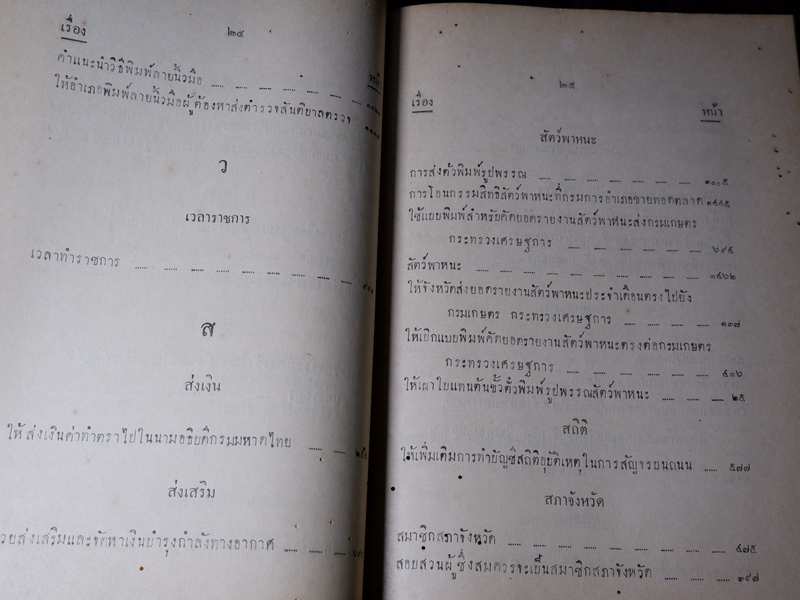 ๒๔
เรื่อง
หน้า
คำแนะนำวิธีพิมพ์ลายนิ้วมือ
ให้อำเภอพิมพ์ลายนิ้วมือผู้ต้องหาส่งตำรวจสันติบาลตรวจ
ว
เวลาราชการ
เวลาทำราชการ
ส
ส่งเงิน
ให้ส่งเงินค่าทำตราไปในนามอธิบดีกรมมหาดไทย
ส่งเสริม
วยส่งเสริมและจัดหาเงินบำรุงกำลังทางอากาศ
๒๕
เรื่อง
หน้า
สัตว์พาหนะ
การส่งตั๋วพิมพ์รูปพรรณ ๑๐๑๕
การโอนกรรมสิทธิสัตว์พาหนะที่กรมการอำเภอขายทอดตลาด
ใช้แบบพิมพ์สำหรับคัดยอดรายงานสัตว์พาหนะส่งกรมเกษตร
กระทรวงเศรษฐการ ๖๙๔
สัตว์พาหนะ ๑๔๖๒
ให้จังหวัดส่งยอดรายงานสัตว์พาหนะประจำเดือนตรงไปยัง
กรมเกษตร กระทรวงเศรษฐการ ๑๓๗
ให้เบิกแบบพิมพ์คัดยอดรายงานสัตว์พาหนะตรงต่อกรมเกษตร
กระทรวงเศรษฐการ ๔๐๖
ให้เผาใบแทนต้นขั้วตั๋วพิมพ์รูปพรรณสัตว์พาหนะ ๒๕
สถิติ
ให้เพิ่มเติมการทำบัญชีสถิติอุบัติเหตุในการสัญจรบนถนน ๕๗๗
สภาจังหวัด
สมาชิกสภาจังหวัด ๔๗๕
สอบสวนผู้ซึ่งสมควรจะเป็นสมาชิกสภาจังหวัด ๓๙๗